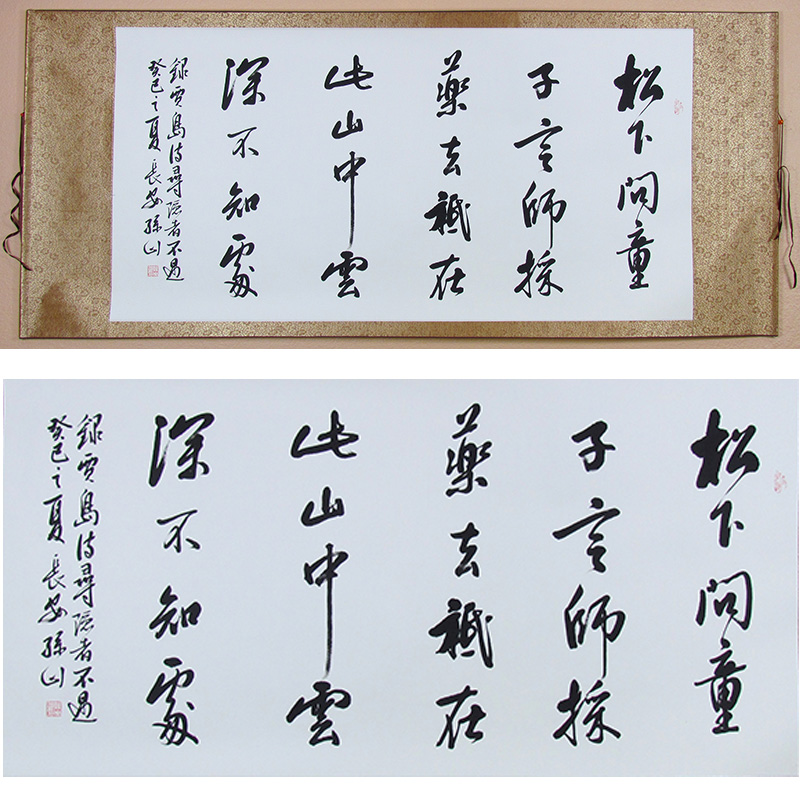 松下問童
子言師採
藥去祗在
此山中雲
深不知處
錄賈島詩尋隱者不遇
癸巳之夏長安孫山
松下問童
子言師採
藥去祗在
此山中雲
深不知處
錄賈島詩尋隱者不遇
癸巳之夏長安孫山